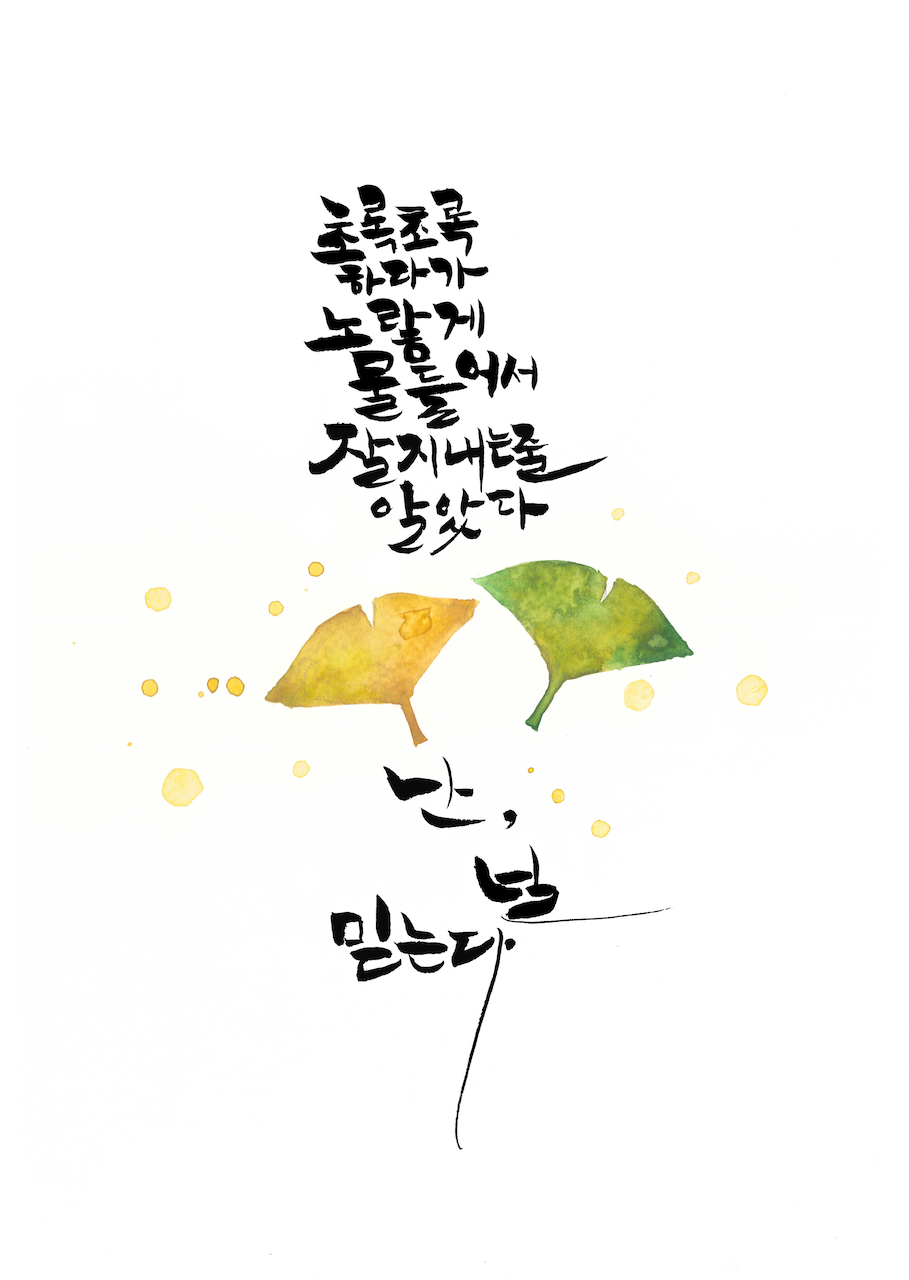 초록초록
하다가
노랗게
물들어서
잘지내는줄
알았다
난,
널
믿는다.